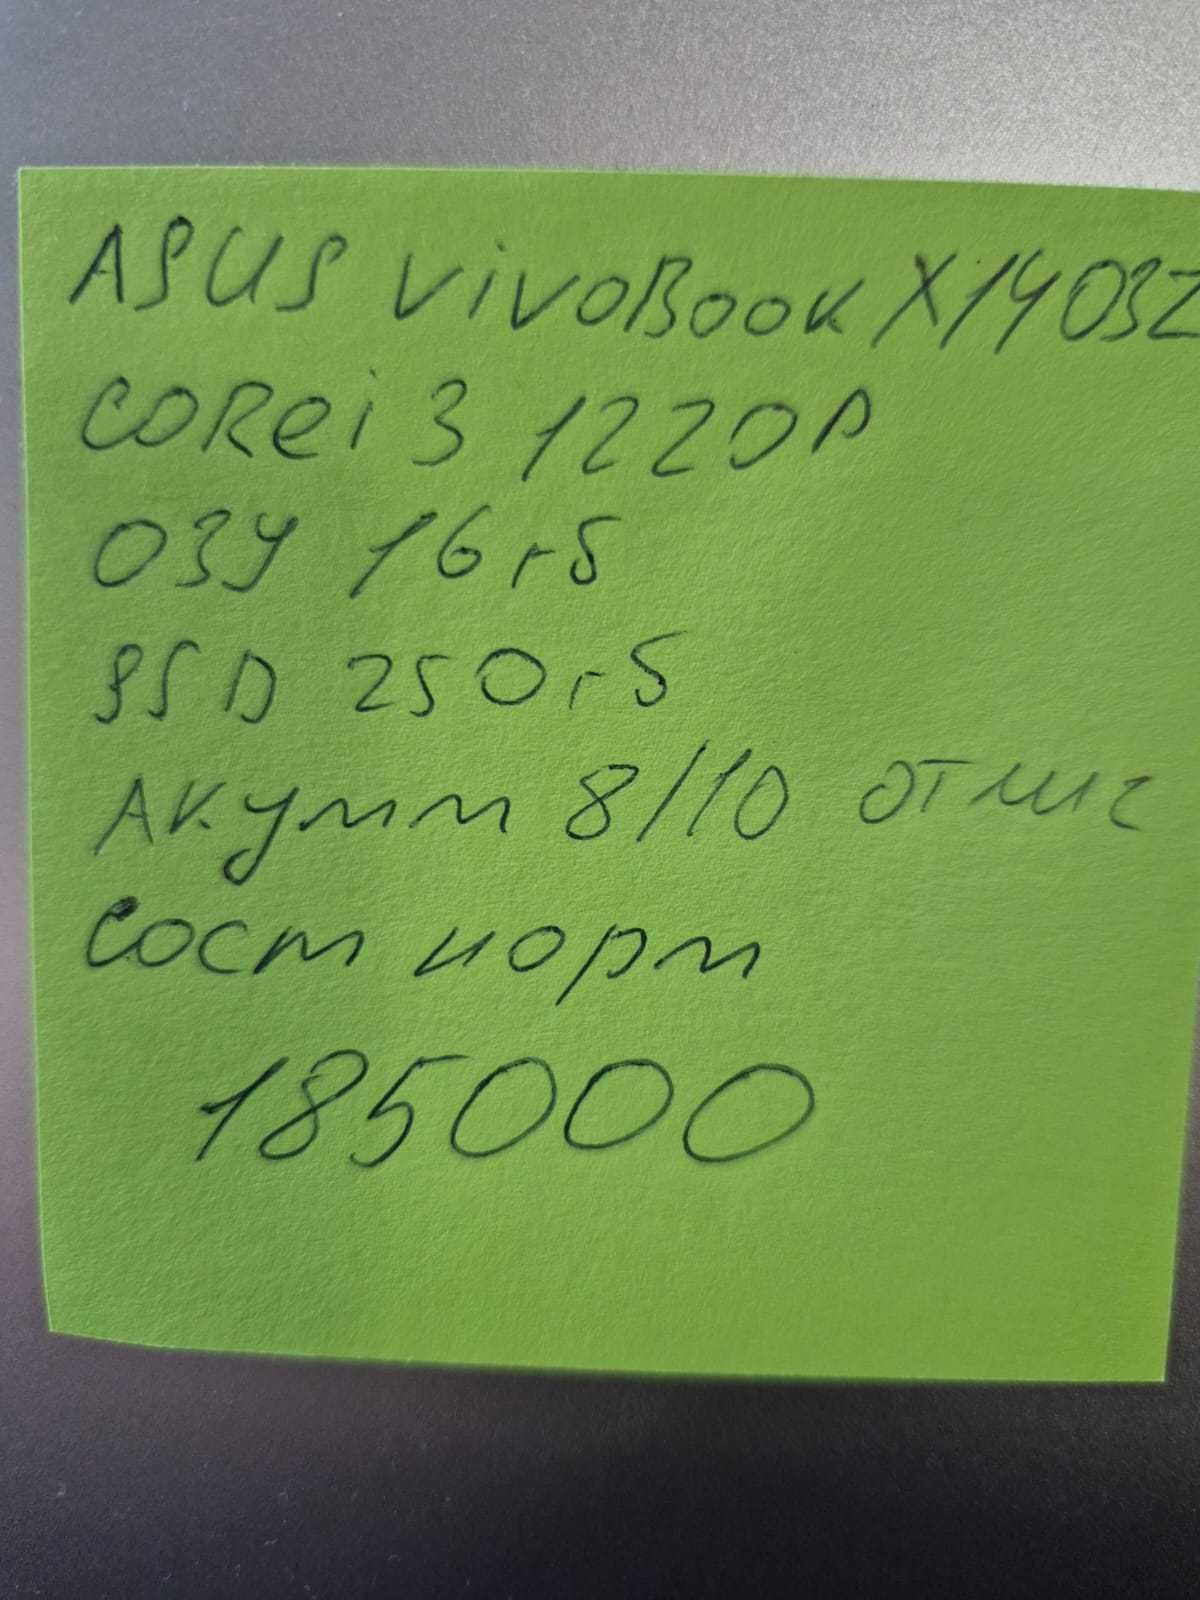 ASUS VivoBook X1403Z
CORei3 1220P
ОЗУ 16гб
SSD 250гб
Акумм 8/10 отлич
Сост норм
185000